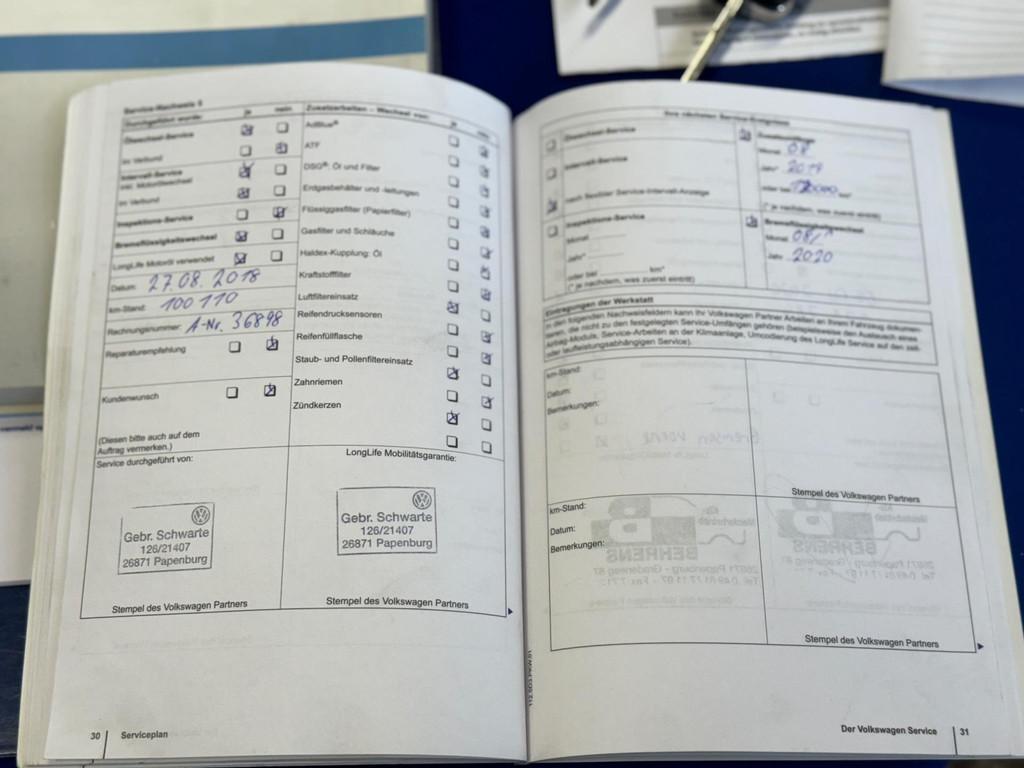 Service-Nachweis 5
Durchgeführt wurde: ja nein
Ölwechsel-Service
im Verbund
Intervall-Service
inkl. Motorölwechsel
im Verbund
Inspektions-Service
Bremsflüssigkeitswechsel
LongLife Motoröl verwendet
Datum: 27.08.2018
km-Stand: 100 110
Rechnungsnummer: A-Nr. 36898
Reparaturempfehlung
Kundenwunsch
(Diesen bitte auch auf dem
Auftrag vermerken.)
Service durchgeführt von:
Gebr. Schwarte
126/21407
26871 Papenburg
Stempel des Volkswagen Partners
Zusatzarbeiten – Wechsel von: ja nein
AdBlue®
ATF
DSG®: Öl und Filter
Erdgasbehälter und -leitungen
Flüssiggasfilter (Papierfilter)
Gasfilter und Schläuche
Haldex-Kupplung: Öl
Kraftstofffilter
Luftfiltereinsatz
Reifendrucksensoren
Reifenfüllflasche
Staub- und Pollenfiltereinsatz
Zahnriemen
Zündkerzen
LongLife Mobilitätsgarantie:
Gebr. Schwarte
126/21407
26871 Papenburg
Stempel des Volkswagen Partners
30 Serviceplan
Ihre nächsten Service-Ereignisse
Ölwechsel-Service
Intervall-Service
nach flexibler Service-Intervall-Anzeige
Inspektions-Service
Monat
Jahr*
oder bei km*
(* je nachdem, was zuerst eintritt)
Monat 08
Jahr* 2019
oder bei km*
(* je nachdem, was zuerst eintritt)
Bremsflüssigkeitswechsel
Monat 08/
Jahr 2020
Eintragungen der Werkstatt
In den folgenden Nachweisfeldern kann Ihr Volkswagen Partner Arbeiten an Ihrem Fahrzeug dokumen-
tieren, die nicht zu den festgelegten Service-Umfängen gehören (beispielsweise den Austausch eines
Airbag-Moduls, Service-Arbeiten an der Klimaanlage, Umcodierung des LongLife Service auf den zeit-
oder laufleistungsabhängigen Service).
km-Stand:
Datum:
Bemerkungen:
Stempel des Volkswagen Partners
km-Stand:
Datum:
Bemerkungen:
Stempel des Volkswagen Partners
Der Volkswagen Service 31